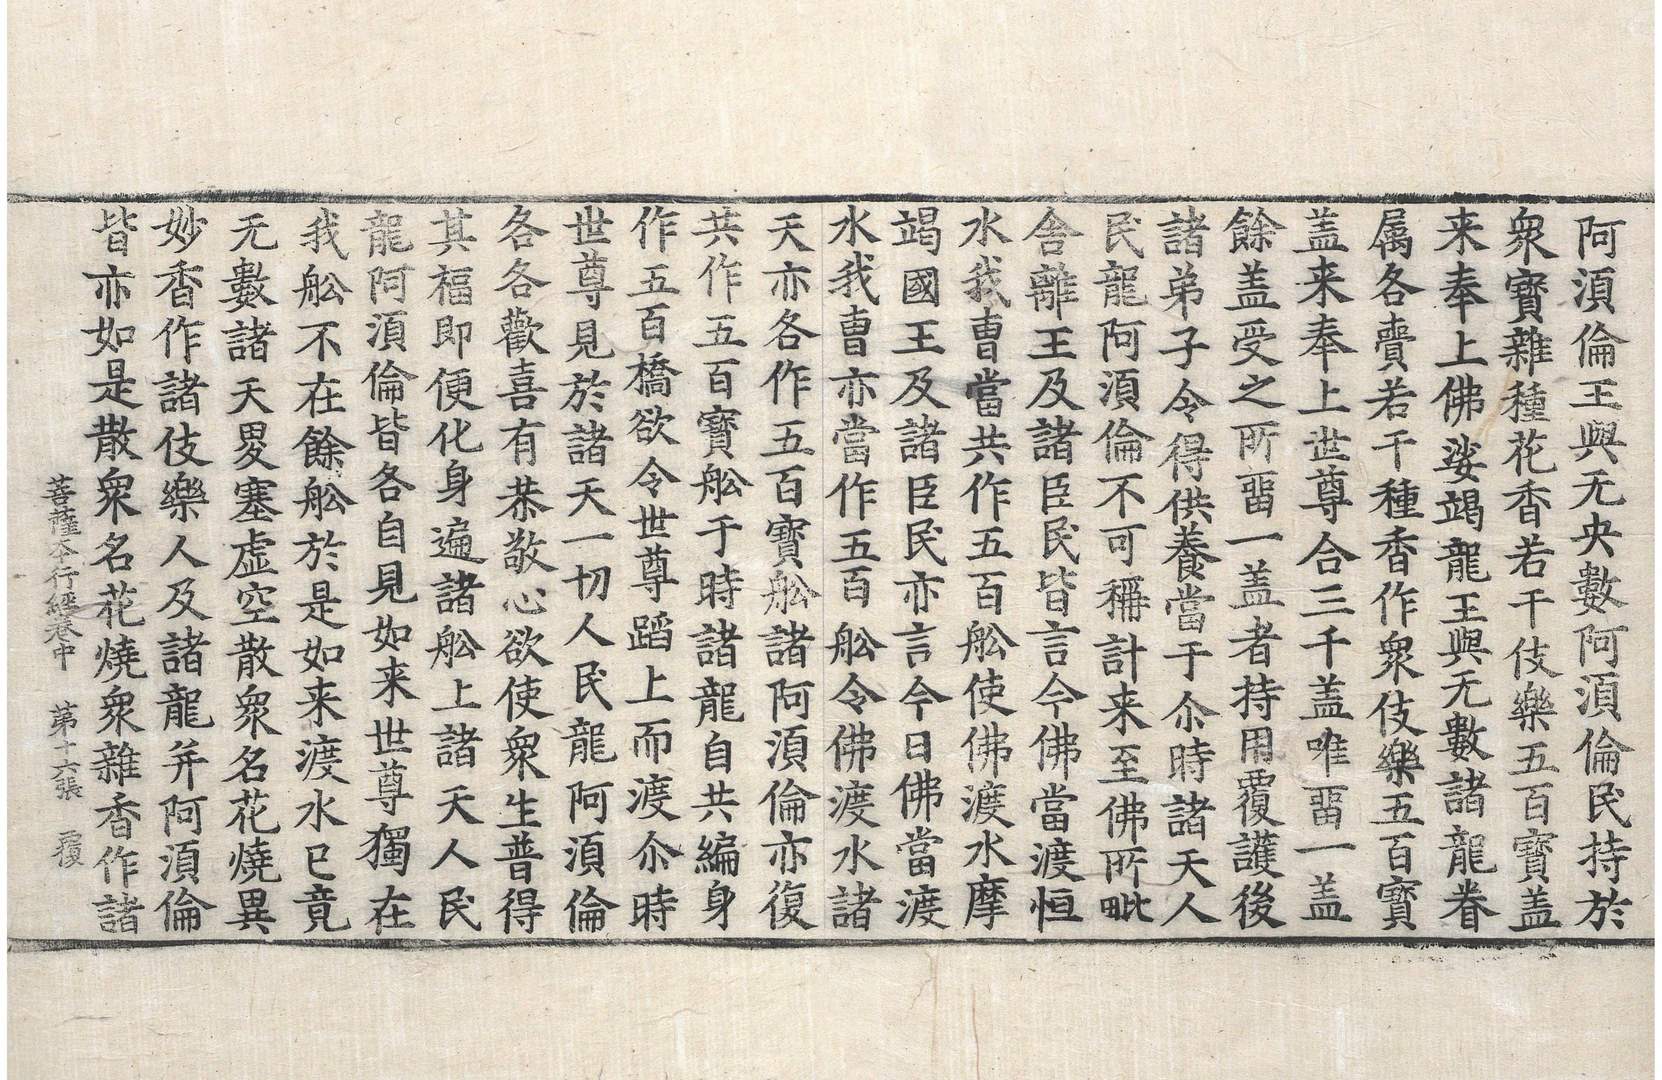 阿須倫王與无央數阿須倫民持於
衆寶雜種花香若干伎樂五百寶盖
来奉上佛娑竭龍王與无數諸龍眷
属各賷若干種香作衆伎樂五百寶
盖来奉上世尊合三千盖唯畱一盖
餘盖受之所畱一盖者持用覆護後
諸弟子令得供養當于尒時諸天人
民龍阿須倫不可稱計来至佛所毗
舍離王及諸臣民皆言今佛當渡恒
水我曺當共作五百舩使佛渡水摩
竭國王及諸臣民亦言今日佛當渡
水我曺亦當作五百舩令佛渡水諸
天亦各作五百寶舩諸阿須倫亦復
共作五百寶舩于時諸龍自共編身
作五百橋欲令世尊蹈上而渡尒時
世尊見於諸天一切人民龍阿須倫
各各歡喜有恭敬心欲使衆生普得
其福即便化身遍諸舩上諸天人民
龍阿須倫皆各自見如来世尊獨在
我舩不在餘舩於是如来渡水已竟
无數諸天畟塞虛空散衆名花燒異
妙香作諸伎樂人及諸龍并阿須倫
皆亦如是散衆名花燒衆雜香作諸
菩薩夲行經卷中　第十六張　覆